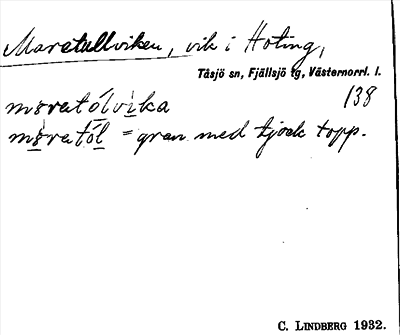 Maretullviken, vik i Hoting,
Tåsjö sn, Fjällsjö tg, Västernorrl. l.
138
maratólvika
maratól = gran med tjock topp.
C. Lindberg 1932.